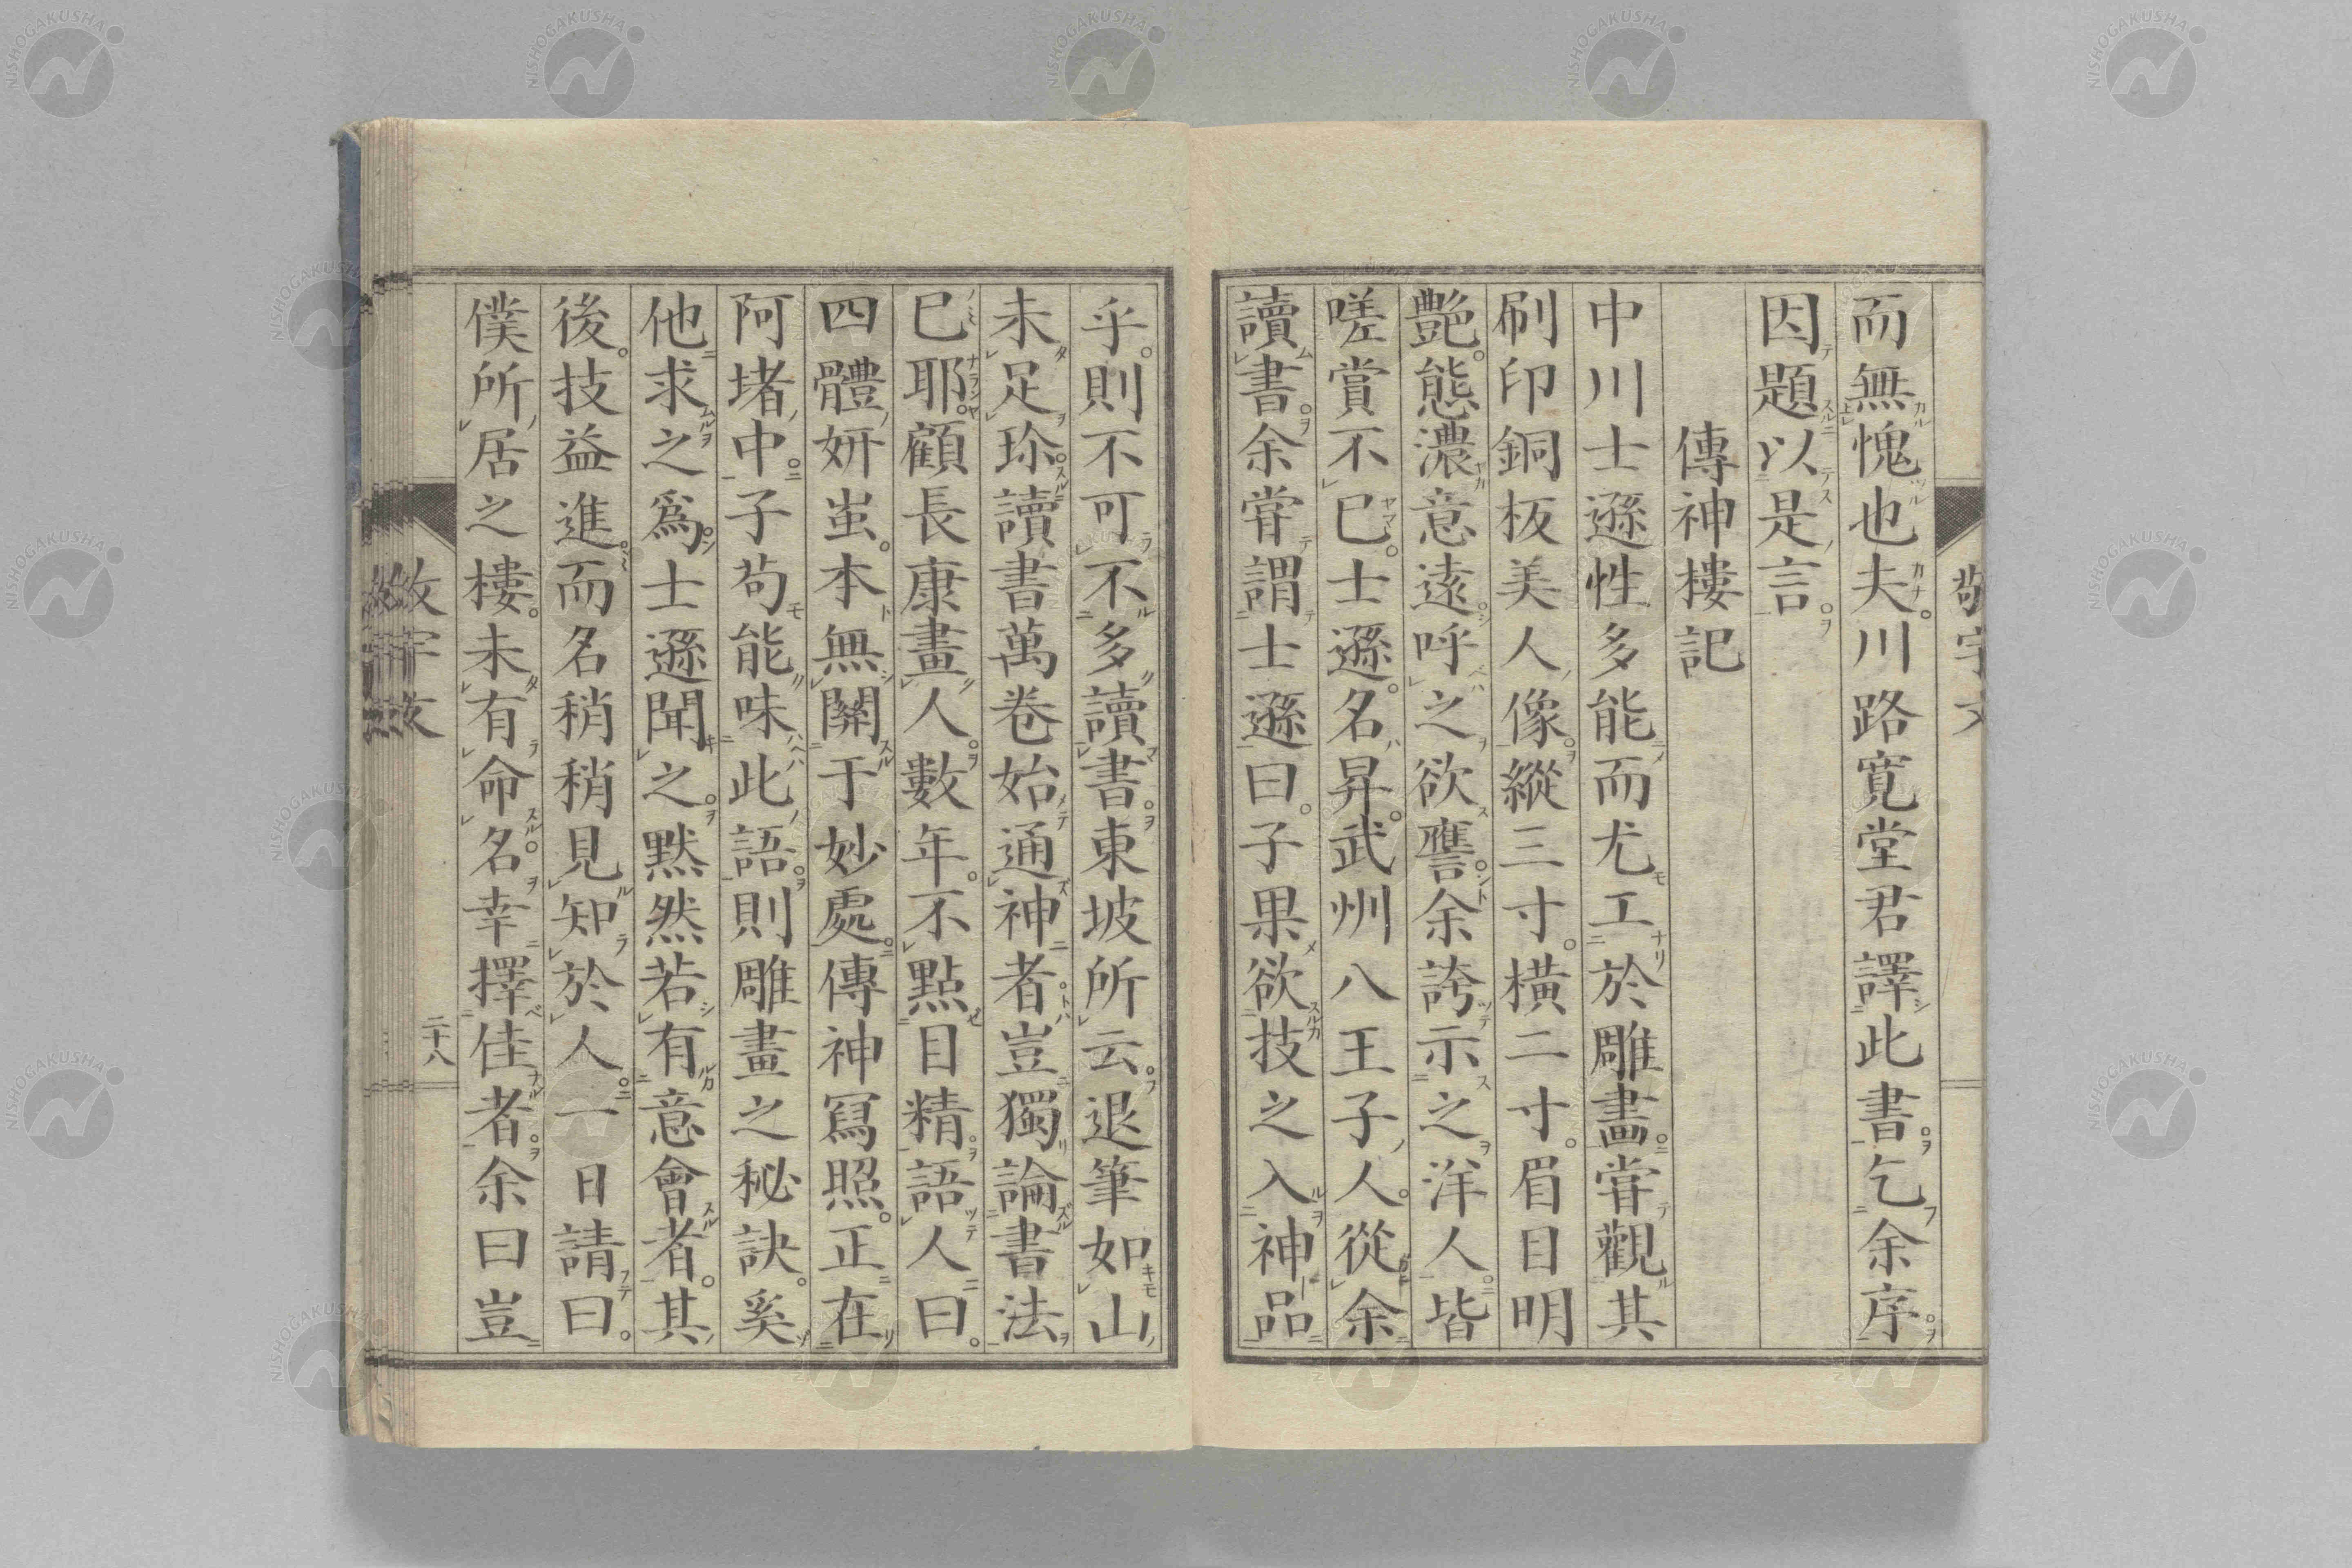 而無愧也夫。川路寛堂君譯此書。乞余序。
因題以是言。
傳神樓記
中川士遜性多能而尤工於雕畫。甞觀其
刷印銅板美人像。縱三寸。橫二寸。眉目明
艷。態濃意遠。呼之欲譍。余誇示之洋人。皆
嗟賞不已。士遜。名昇。武州八王子人。從余
讀書。余甞謂士遜曰。子果欲技之入神品
乎。則不可不多讀書。東坡所云。退筆如山
未足珍。讀書萬卷始通神者。豈獨論書法
已耶。顧長康畫人。數年。不點目精。語人曰。
四體妍蚩。本無關于妙處。傳神冩照。正在
阿堵中。子苟能味此語。則雕畫之秘訣。奚
他求之爲。士遜聞之。默然若有意會者。其
後。技益進。而名稍稍見知於人。一日請曰。
僕所居之樓。未有命名。幸擇佳者。余曰豈
敬宇文
二十八
NISHOGAKUSHA